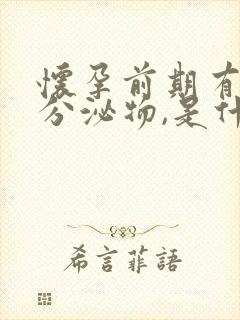 懷孕前期有
分泌物,是什
希言菲語